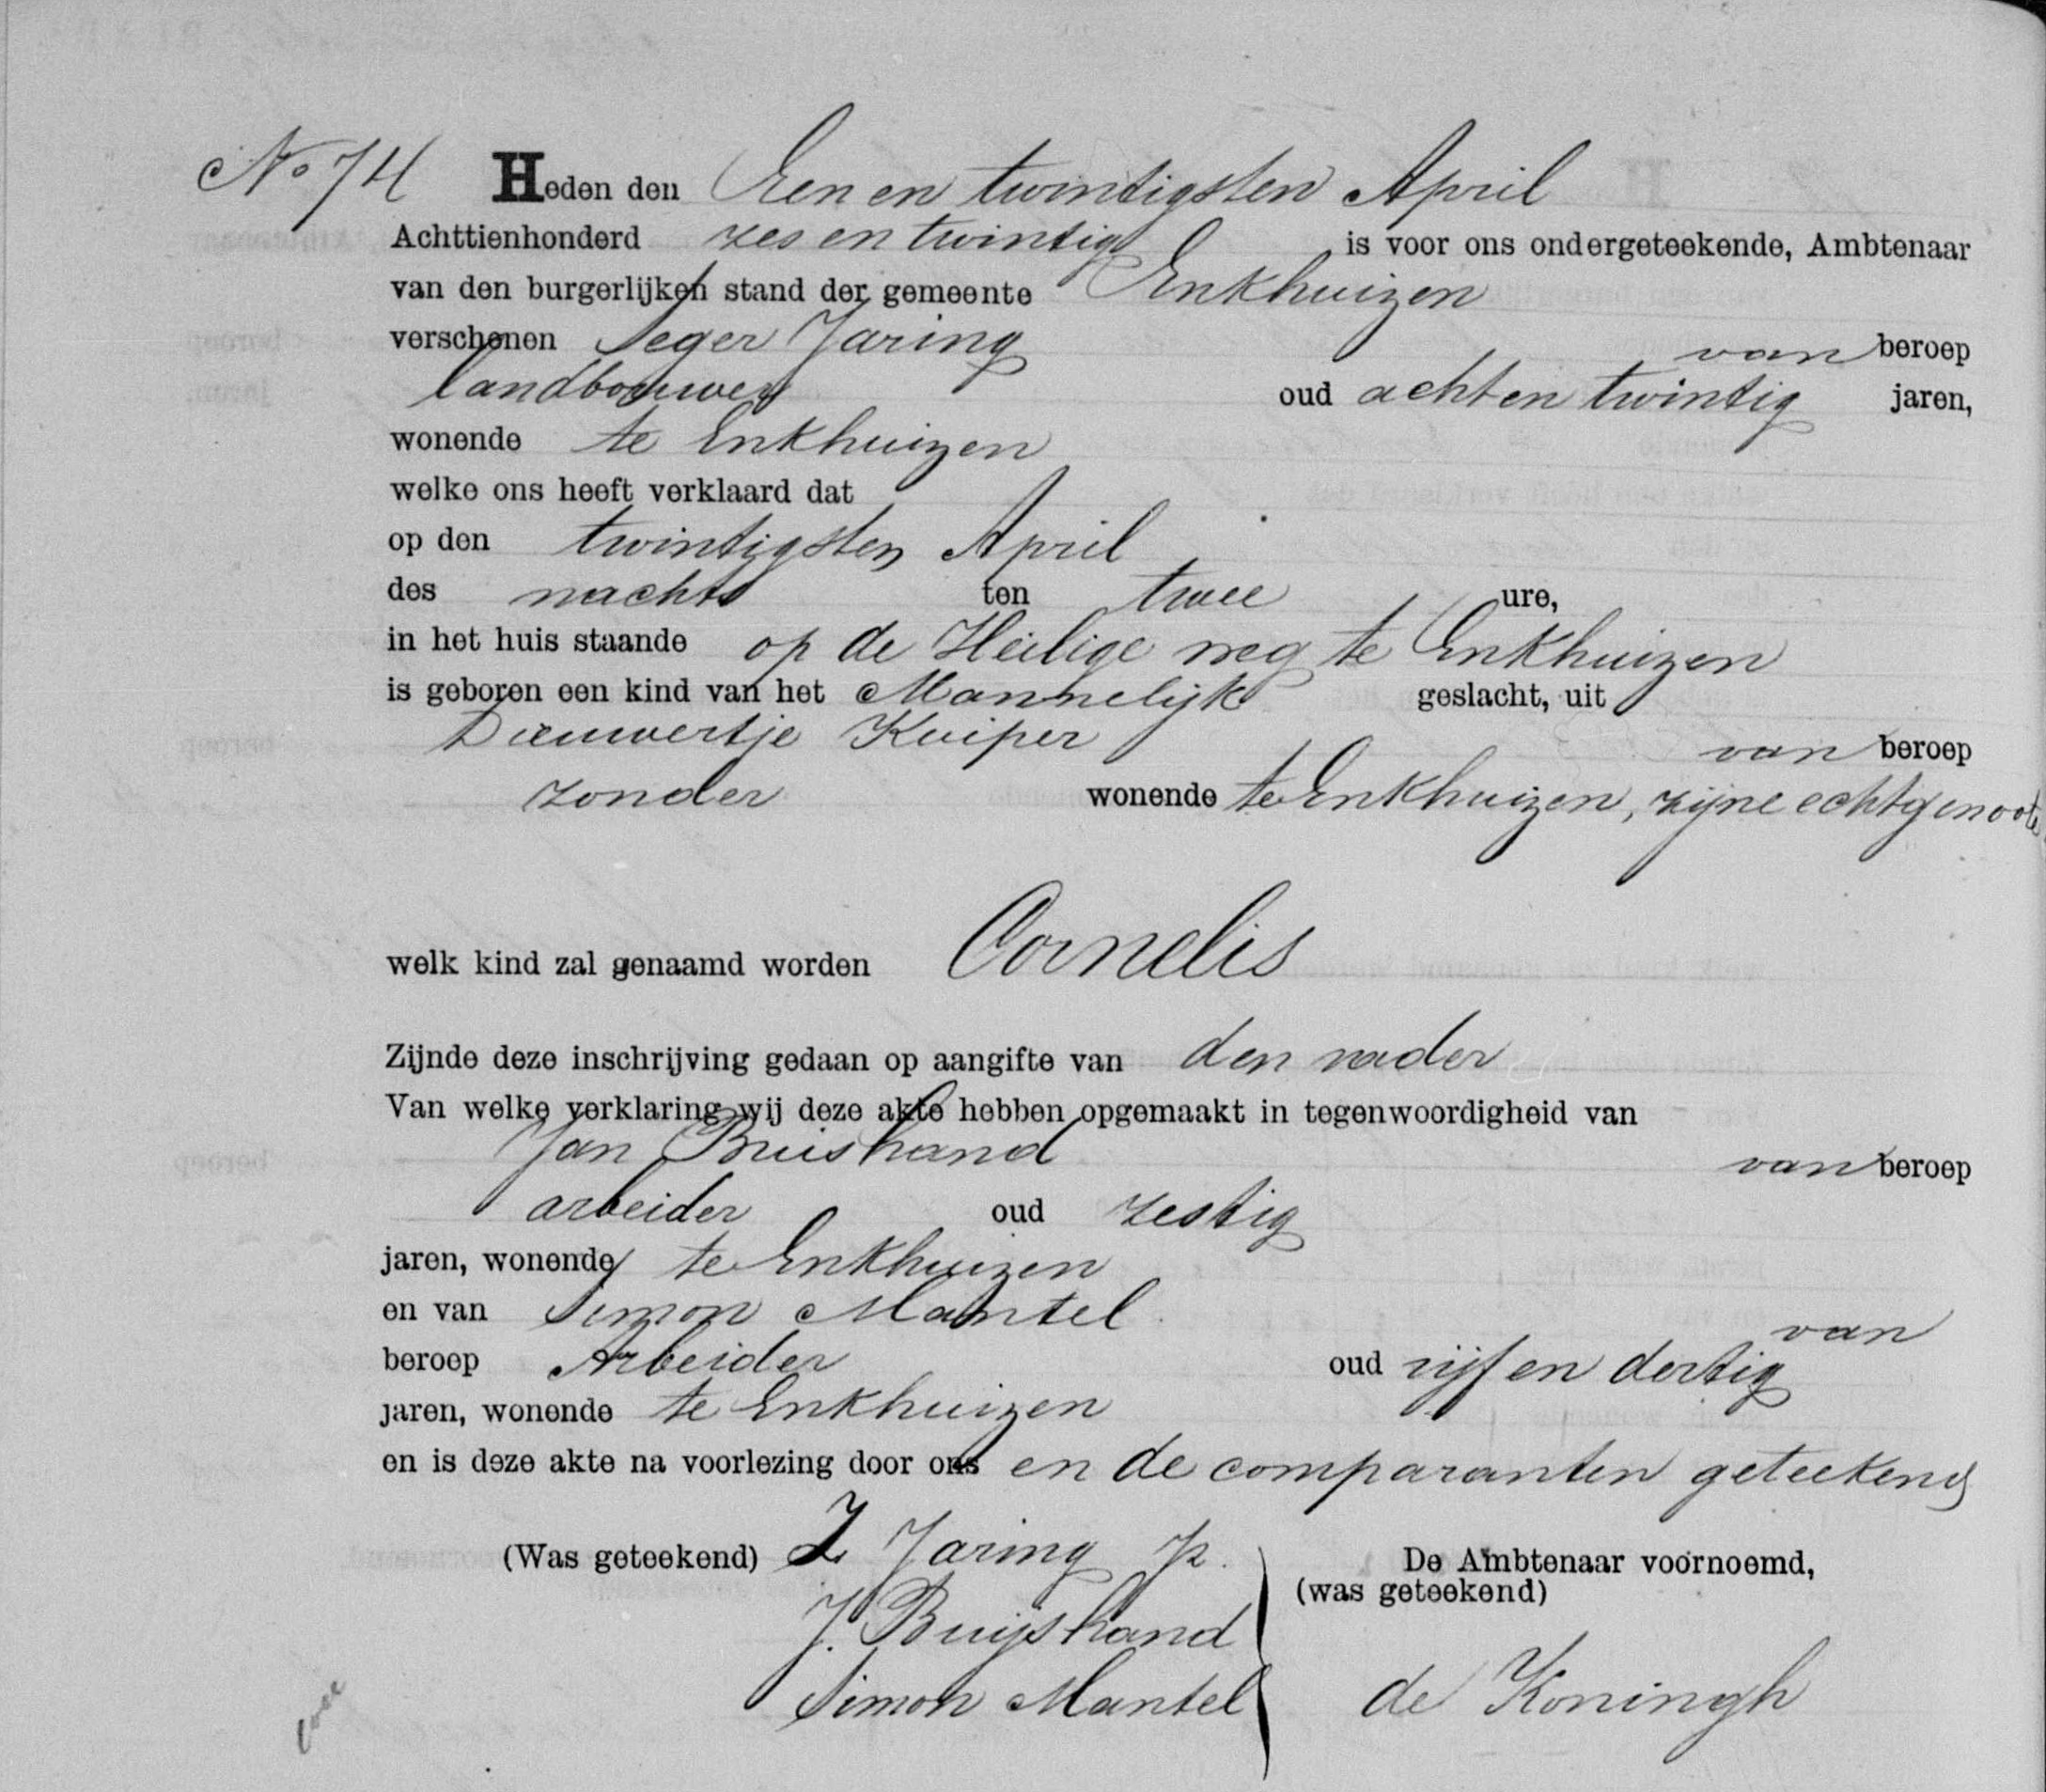 No 74 Heden den Een en twintigsten April
Achttienhonderd zes en twintig is voor ons ondergeteekende, Ambtenaar
van den burgerlijken stand der gemeente Enkhuizen
verschenen Seger Jaring van beroep
landbouwer oud acht en twintig jaren,
wonende te Enkhuizen
welke ons heeft verklaard dat
op den twintigsten April
des nachts ten twee ure,
in het huis staande op de Heilige weg te Enkhuizen
is geboren een kind van het Mannelijk geslacht, uit
Dieuwertje Kuiper van beroep
zonder wonende te Enkhuizen, zijne echtgenoote
welk kind zal genaamd worden Cornelis
Zijnde deze inschrijving gedaan op aangifte van den vader
Van welke verklaring wij deze akte hebben opgemaakt in tegenwoordigheid van
Jan Buishand van beroep
arbeider oud zestig
jaren, wonende te Enkhuizen
en van Simon Mantel van
beroep Arbeider oud vijf en dertig
jaren, wonende te Enkhuizen
en is deze akte na voorlezing door ons en de comparanten geteekend
(Was geteekend) Jaring
De Ambtenaar voornoemd,
(was geteekend)
J. Buijshand
Simon Mantel de Koningh